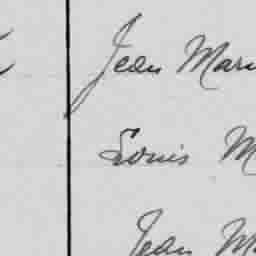 Jean Mari
Louis M
Jean Ma